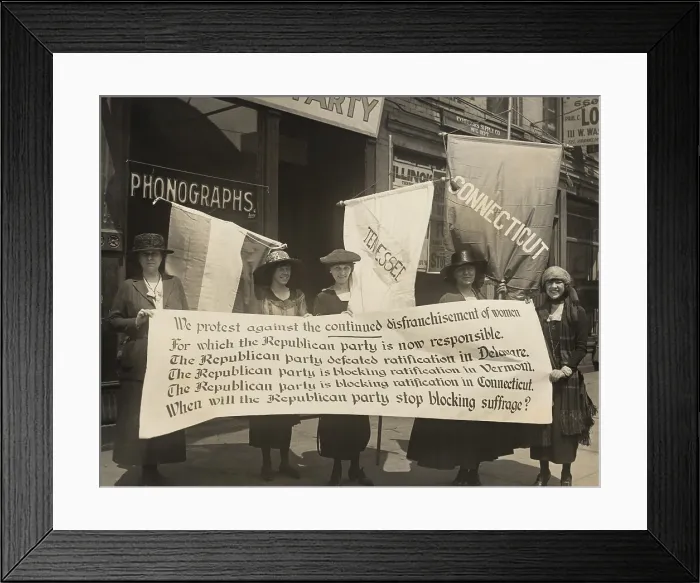 PARTY
666
LO
111 W. WA
PHONOGRAPHS.
ILLINOIS
TENESSEE
CONNECTICUT
We protest against the continued disfranchisement of women
For which the Republican party is now responsible.
The Republican party defeated ratification in Delaware.
The Republican party is blocking ratification in Vermont.
The Republican party is blocking ratification in Connecticut.
When will the Republican party stop blocking suffrage?